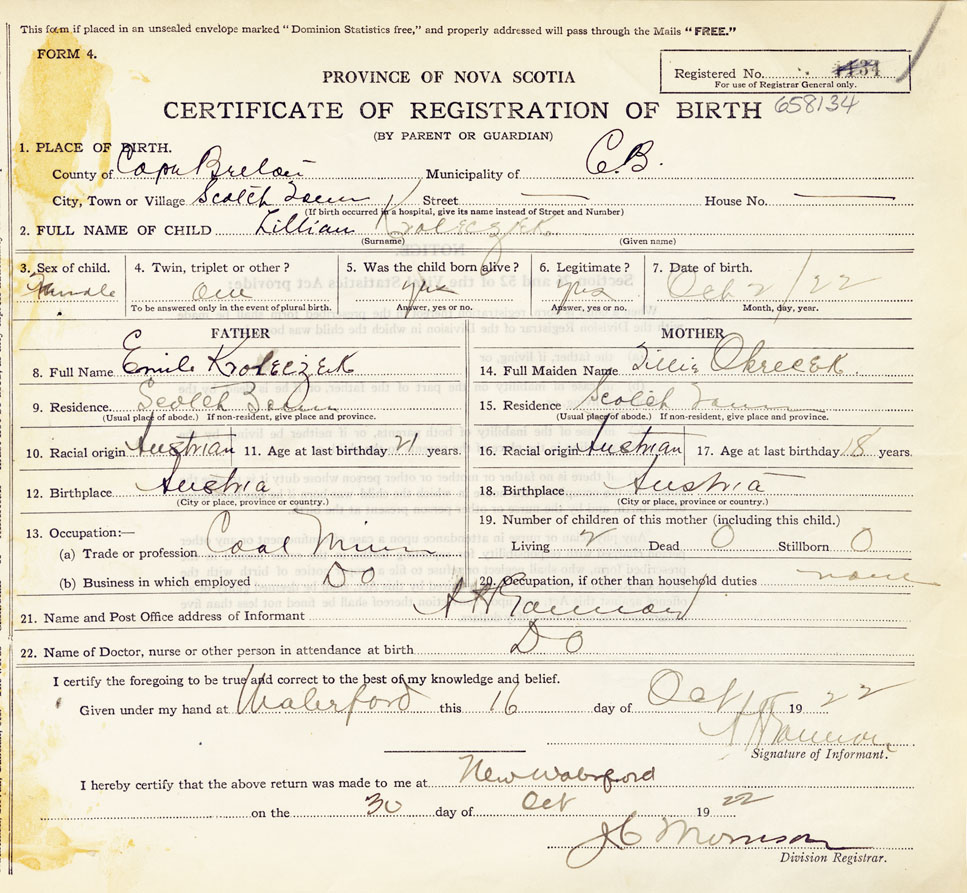 This form if placed in an unsealed envelope marked "Dominion Statistics free," and properly addressed will pass through the Mails "FREE."
FORM 4.
PROVINCE OF NOVA SCOTIA
Registered No.
For use of Registrar General only.
CERTIFICATE OF REGISTRATION OF BIRTH 658134
(BY PARENT OR GUARDIAN)
1. PLACE OF BIRTH.
County of Cape Breton Municipality of C.B.
City, Town or Village Scotch Town Street — House No. —
(If birth occurred in a hospital, give its name instead of Street and Number)
2. FULL NAME OF CHILD Lillian Kroleczek
(Surname) (Given name)
3. Sex of child. 4. Twin, triplet or other? 5. Was the child born alive? 6. Legitimate? 7. Date of birth.
Female one yes yes Oct 2/22
To be answered only in the event of plural birth. Answer, yes or no. Answer, yes or no. Month, day, year.
FATHER MOTHER
8. Full Name Emile Kroleczek 14. Full Maiden Name Tillie Okrecek.
9. Residence Scotch Town 15. Residence Scotch Town
(Usual place of abode.) If non-resident, give place and province. (Usual place of abode.) If non-resident, give place and province.
10. Racial origin Austrian 11. Age at last birthday 21 years. 16. Racial origin Austrian 17. Age at last birthday 18 years.
12. Birthplace Austria 18. Birthplace Austria
(City or place, province or country.) (City or place, province or country.)
13. Occupation:— 19. Number of children of this mother (including this child.)
(a) Trade or profession Coal Miner Living 2 Dead 0 Stillborn 0
(b) Business in which employed DO 20. Occupation, if other than household duties none
21. Name and Post Office address of Informant
22. Name of Doctor, nurse or other person in attendance at birth DO
I certify the foregoing to be true and correct to the best of my knowledge and belief.
Given under my hand at Waterford this 16 day of Oct 1922
Signature of Informant.
I hereby certify that the above return was made to me at New Waterford
on the 30 day of Oct 1922
J C Morrison
Division Registrar.